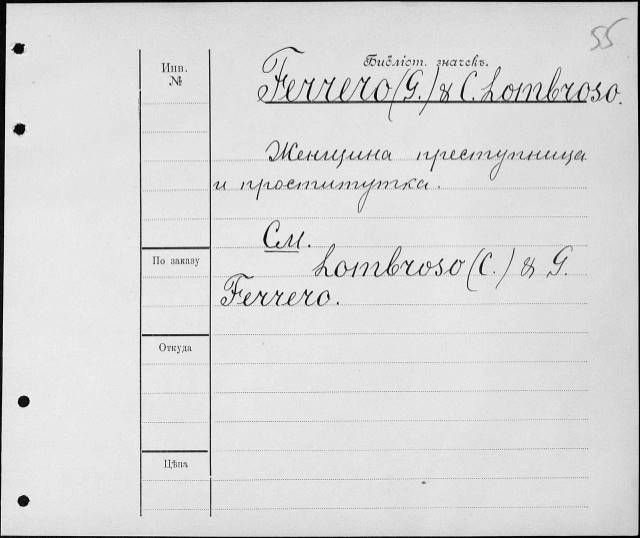 55
Библіот. значекъ.
Инв.
№
Ferrero (G.) & C. Lombroso.
Женщина преступница
и проститутка.
См.
По заказу
Lombroso (C.) & G.
Ferrero.
Откуда
Цѣна